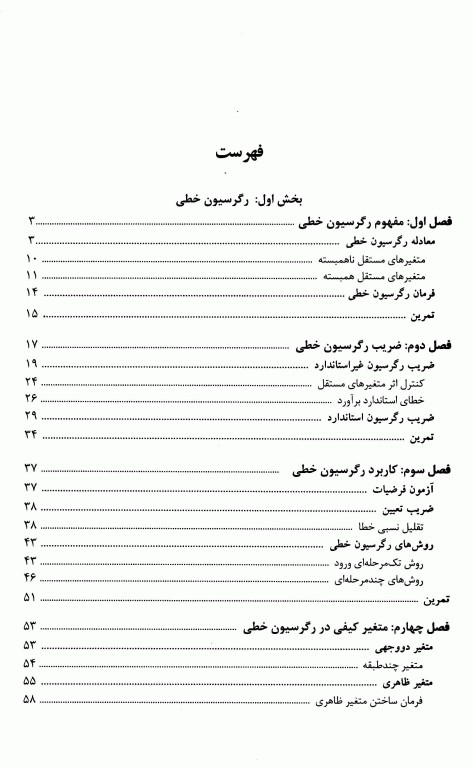 فهرست
بخش اول: رگرسیون خطی
فصل اول: مفهوم رگرسیون خطی ۳
معادله رگرسیون خطی ۳
متغیرهای مستقل ناهمبسته ۱۰
متغیرهای مستقل همبسته ۱۱
فرمان رگرسیون خطی ۱۴
تمرین ۱۵
فصل دوم: ضریب رگرسیون خطی ۱۷
ضریب رگرسیون غیراستاندارد ۱۹
کنترل اثر متغیرهای مستقل ۲۴
خطای استاندارد برآورد ۲۶
ضریب رگرسیون استاندارد ۲۹
تمرین ۳۴
فصل سوم: کاربرد رگرسیون خطی ۳۷
آزمون فرضیات ۳۷
ضریب تعیین ۳۸
تقلیل نسبی خطا ۳۸
روش‌های رگرسیون خطی ۴۳
روش تک‌مرحله‌ای ورود ۴۳
روش‌های چندمرحله‌ای ۴۶
تمرین ۵۱
فصل چهارم: متغیر کیفی در رگرسیون خطی ۵۳
متغیر دووجهی ۵۳
متغیر چندطبقه ۵۴
متغیر ظاهری ۵۵
فرمان ساختن متغیر ظاهری ۵۸